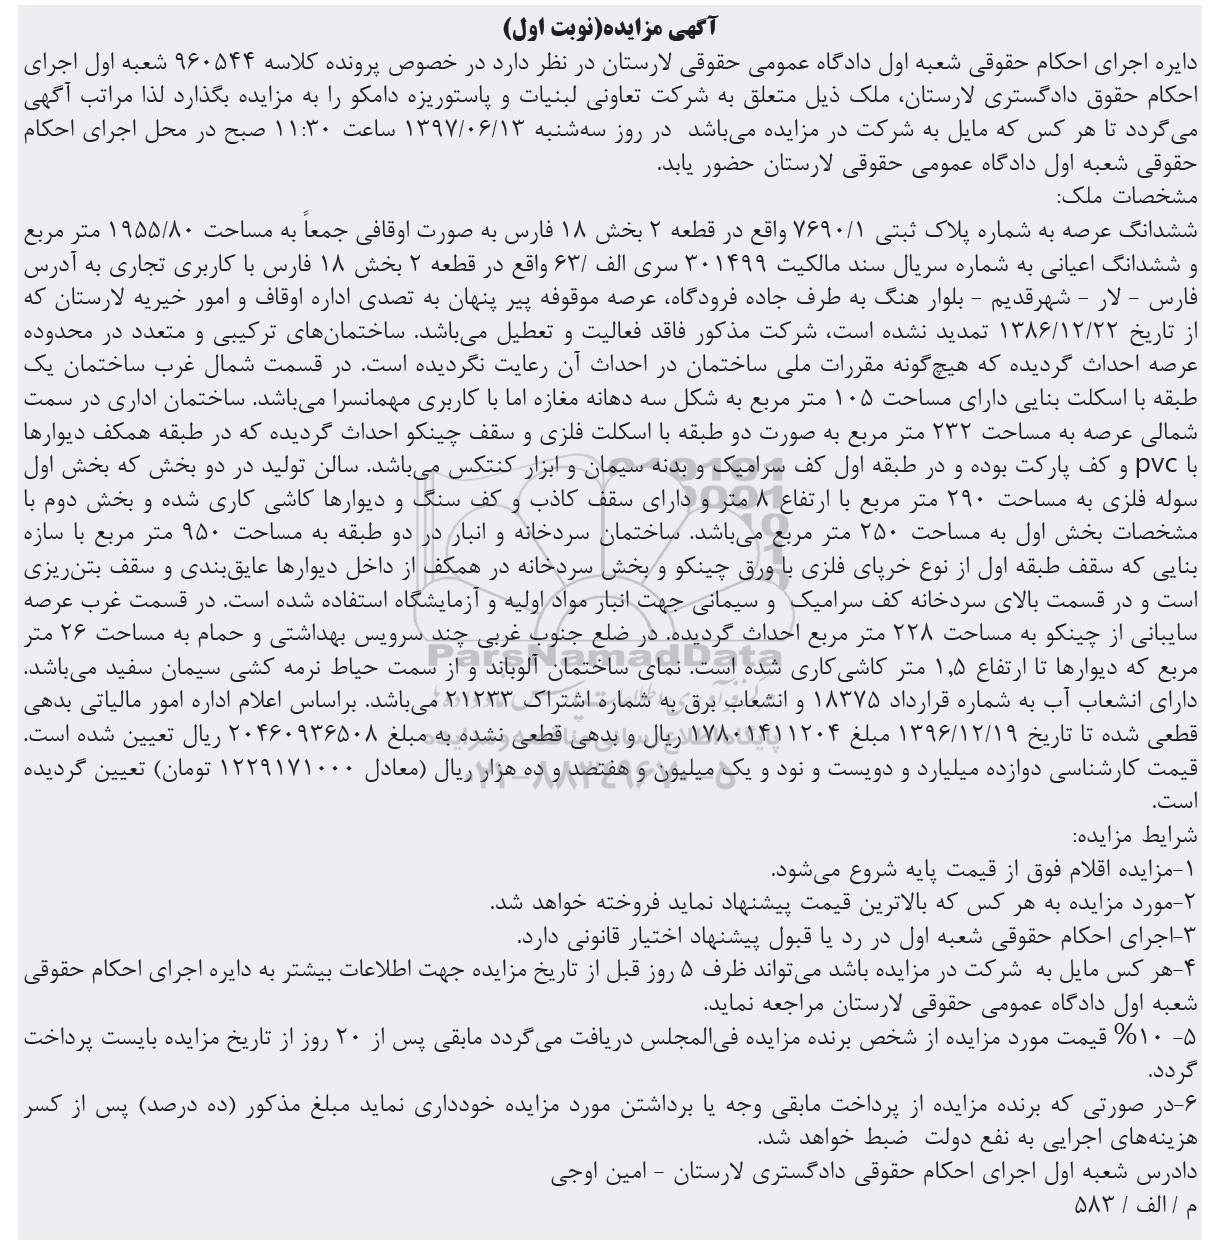 آگهی مزایده(نوبت اول)
دایره اجرای احکام حقوقی شعبه اول دادگاه عمومی حقوقی لارستان در نظر دارد در خصوص پرونده کلاسه ۹۶۰۵۴۴ شعبه اول اجرای
احکام حقوق دادگستری لارستان، ملک ذیل متعلق به شرکت تعاونی لبنیات و پاستوریزه دامکو را به مزایده بگذارد لذا مراتب آگهی
می‌گردد تا هر کس که مایل به شرکت در مزایده می‌باشد در روز سه‌شنبه ۱۳۹۷/۰۶/۱۳ ساعت ۱۱:۳۰ صبح در محل اجرای احکام
حقوقی شعبه اول دادگاه عمومی حقوقی لارستان حضور یابد.
مشخصات ملک:
ششدانگ عرصه به شماره پلاک ثبتی ۷۶۹۰/۱ واقع در قطعه ۲ بخش ۱۸ فارس به صورت اوقافی جمعاً به مساحت ۱۹۵۵/۸۰ متر مربع
و ششدانگ اعیانی به شماره سریال سند مالکیت ۳۰۱۴۹۹ سری الف /۶۳ واقع در قطعه ۲ بخش ۱۸ فارس با کاربری تجاری به آدرس
فارس - لار - شهرقدیم - بلوار هنگ به طرف جاده فرودگاه، عرصه موقوفه پیر پنهان به تصدی اداره اوقاف و امور خیریه لارستان که
از تاریخ ۱۳۸۶/۱۲/۲۲ تمدید نشده است، شرکت مذکور فاقد فعالیت و تعطیل می‌باشد. ساختمان‌های ترکیبی و متعدد در محدوده
عرصه احداث گردیده که هیچ‌گونه مقررات ملی ساختمان در احداث آن رعایت نگردیده است. در قسمت شمال غرب ساختمان یک
طبقه با اسکلت بنایی دارای مساحت ۱۰۵ متر مربع به شکل سه دهانه مغازه اما با کاربری مهمانسرا می‌باشد. ساختمان اداری در سمت
شمالی عرصه به مساحت ۲۳۲ متر مربع به صورت دو طبقه با اسکلت فلزی و سقف چینکو احداث گردیده که در طبقه همکف دیوارها
با pvc و کف پارکت بوده و در طبقه اول کف سرامیک و بدنه سیمان و ابزار کنتکس می‌باشد. سالن تولید در دو بخش که بخش اول
سوله فلزی به مساحت ۲۹۰ متر مربع با ارتفاع ۸ متر و دارای سقف کاذب و کف سنگ و دیوارها کاشی کاری شده و بخش دوم با
مشخصات بخش اول به مساحت ۲۵۰ متر مربع می‌باشد. ساختمان سردخانه و انبار در دو طبقه به مساحت ۹۵۰ متر مربع با سازه
بنایی که سقف طبقه اول از نوع خرپای فلزی با ورق چینکو و بخش سردخانه در همکف از داخل دیوارها عایق‌بندی و سقف بتن‌ریزی
است و در قسمت بالای سردخانه کف سرامیک و سیمانی جهت انبار مواد اولیه و آزمایشگاه استفاده شده است. در قسمت غرب عرصه
سایبانی از چینکو به مساحت ۲۲۸ متر مربع احداث گردیده. در ضلع جنوب غربی چند سرویس بهداشتی و حمام به مساحت ۲۶ متر
مربع که دیوارها تا ارتفاع ۱٫۵ متر کاشی‌کاری شده است. نمای ساختمان آلوباند و از سمت حیاط نرمه کشی سیمان سفید می‌باشد.
دارای انشعاب آب به شماره قرارداد ۱۸۳۷۵ و انشعاب برق به شماره اشتراک ۲۱۲۳۳ می‌باشد. براساس اعلام اداره امور مالیاتی بدهی
قطعی شده تا تاریخ ۱۳۹۶/۱۲/۱۹ مبلغ ۱۷۸۰۱۴۱۱۲۰۴ ریال و بدهی قطعی نشده به مبلغ ۲۰۴۶۰۹۳۶۵۰۸ ریال تعیین شده است.
قیمت کارشناسی دوازده میلیارد و دویست و نود و یک میلیون و هفتصد و ده هزار ریال (معادل ۱۲۲۹۱۷۱۰۰۰ تومان) تعیین گردیده
است.
شرایط مزایده:
۱-مزایده اقلام فوق از قیمت پایه شروع می‌شود.
۲-مورد مزایده به هر کس که بالاترین قیمت پیشنهاد نماید فروخته خواهد شد.
۳-اجرای احکام حقوقی شعبه اول در رد یا قبول پیشنهاد اختیار قانونی دارد.
۴-هر کس مایل به شرکت در مزایده باشد می‌تواند ظرف ۵ روز قبل از تاریخ مزایده جهت اطلاعات بیشتر به دایره اجرای احکام حقوقی
شعبه اول دادگاه عمومی حقوقی لارستان مراجعه نماید.
۵- ۱۰% قیمت مورد مزایده از شخص برنده مزایده فی‌المجلس دریافت می‌گردد مابقی پس از ۲۰ روز از تاریخ مزایده بایست پرداخت
گردد.
۶-در صورتی که برنده مزایده از پرداخت مابقی وجه یا برداشتن مورد مزایده خودداری نماید مبلغ مذکور (ده درصد) پس از کسر
هزینه‌های اجرایی به نفع دولت ضبط خواهد شد.
دادرس شعبه اول اجرای احکام حقوقی دادگستری لارستان - امین اوجی
م / الف / ۵۸۳
ParsNamadData
پایگاه اطلاع رسانی مناقصه و مزایده